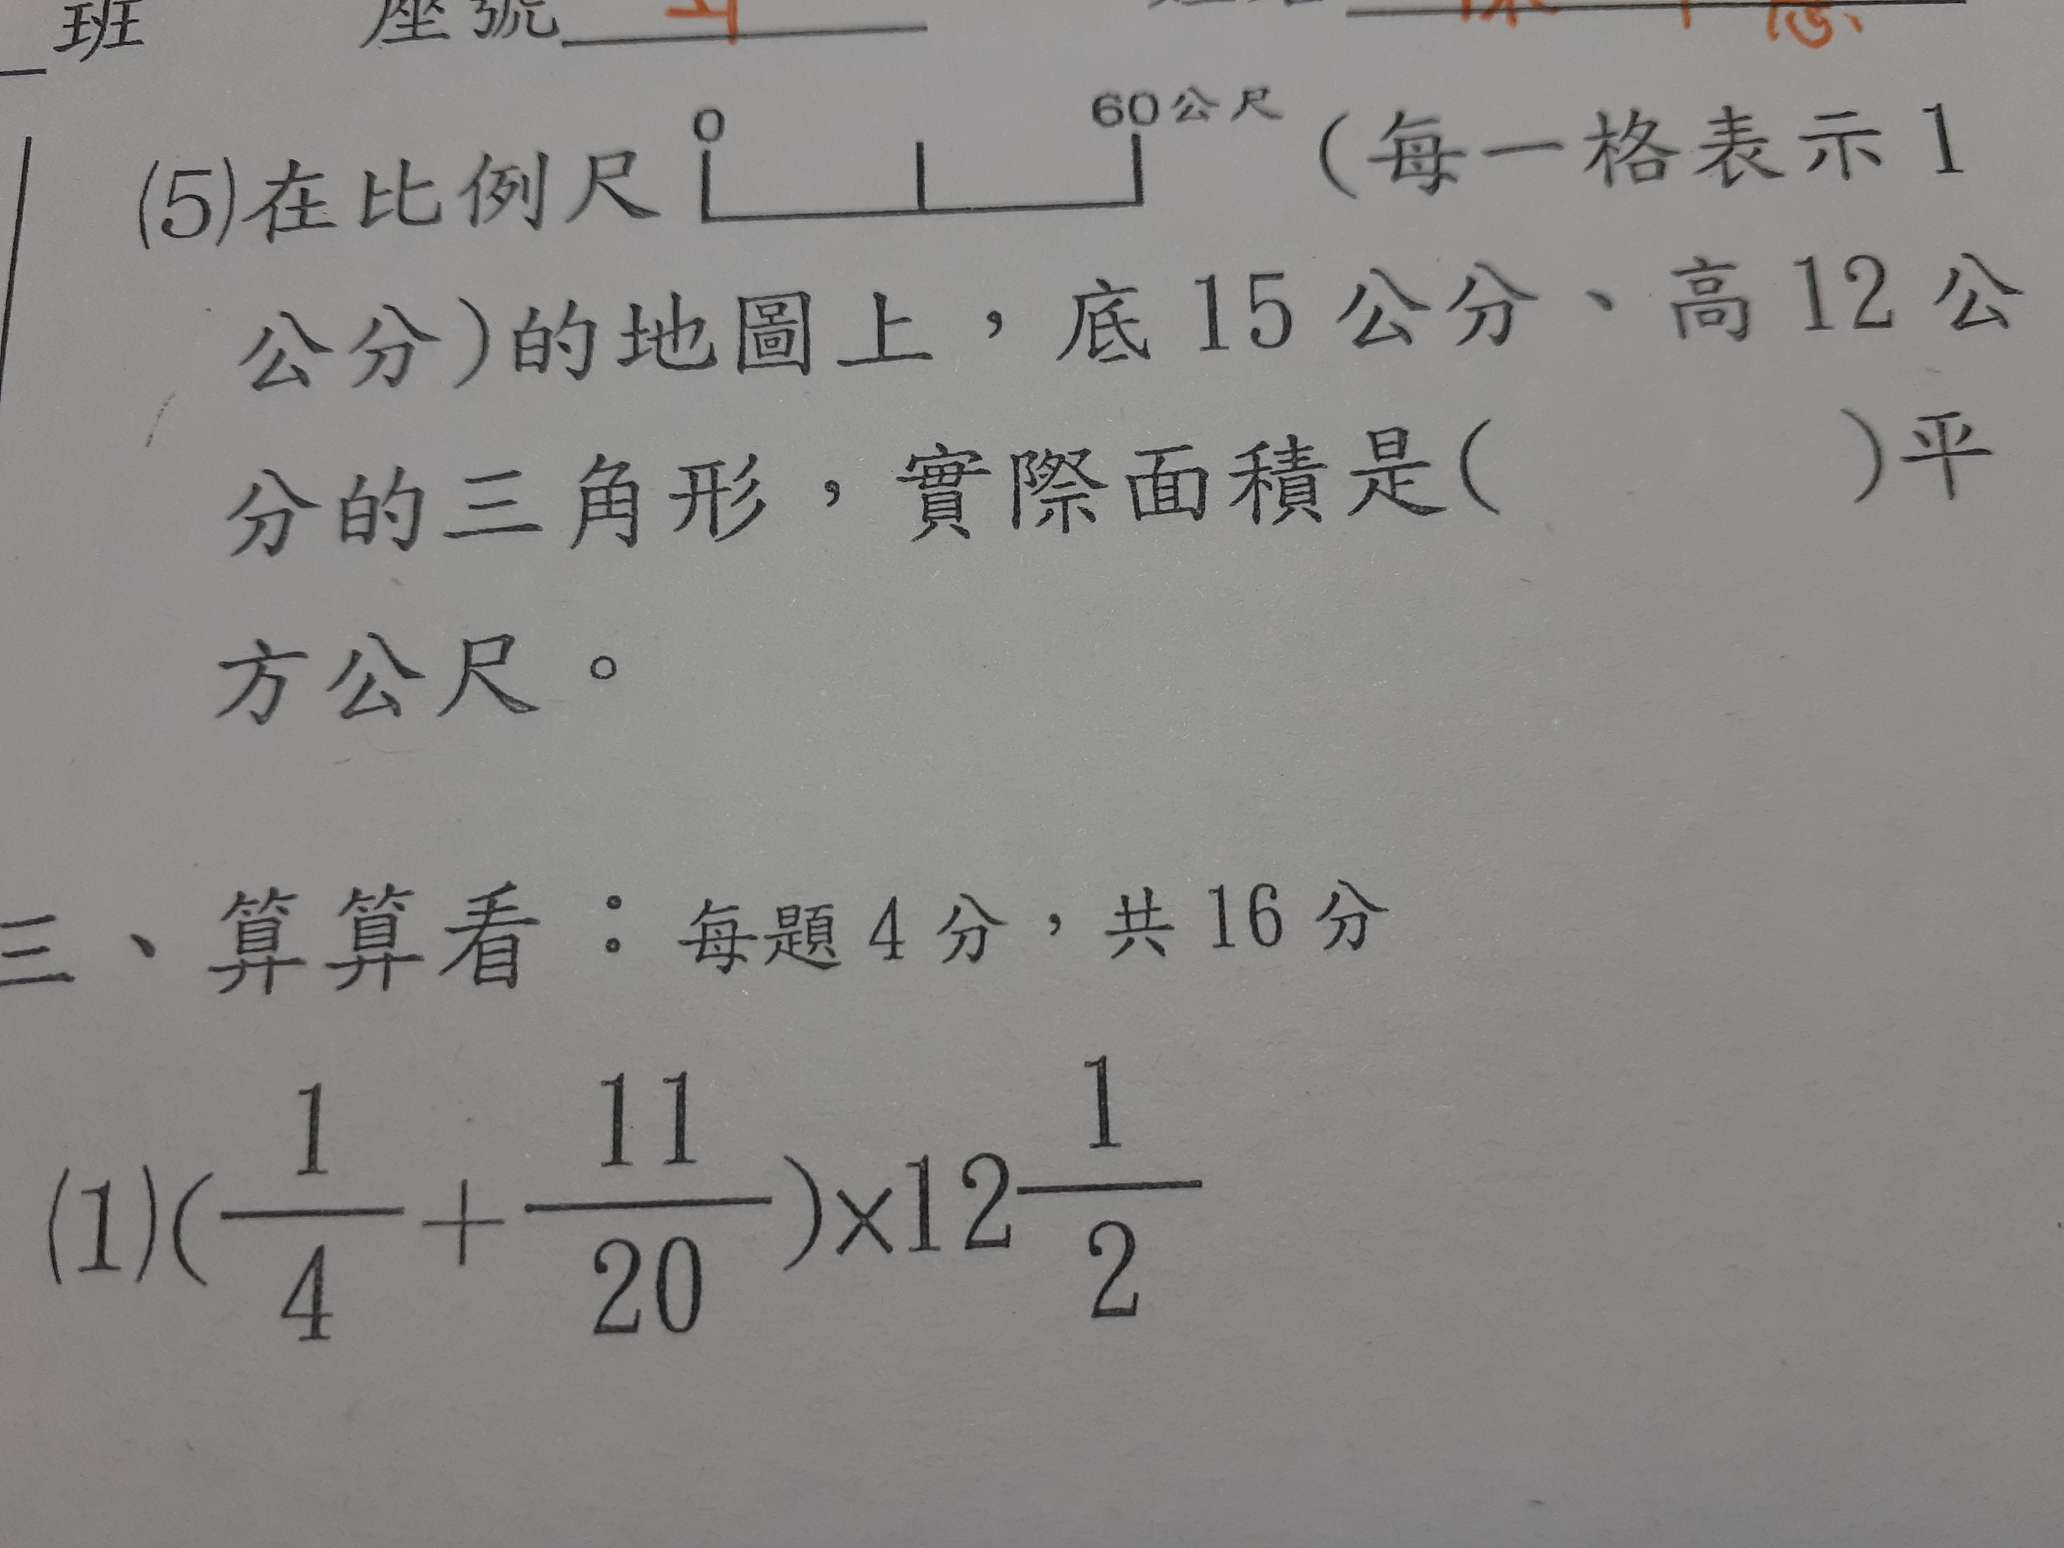 班 座號
0 60公尺
(5)在比例尺 (每一格表示1
公分)的地圖上，底15公分、高12公
分的三角形，實際面積是( )平
方公尺。
三、算算看：每題4分，共16分
(1)(1/4+11/20)×12 1/2